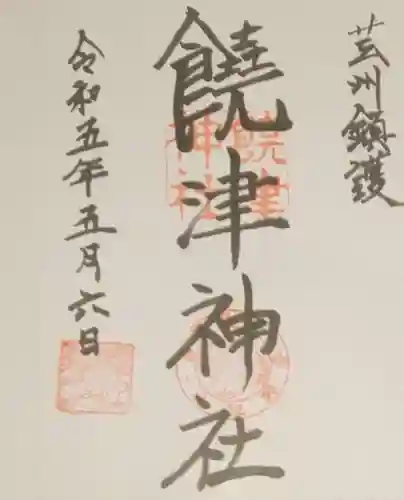 芸州鎮護
饒津神社
饒津
神社
令和五年五月六日